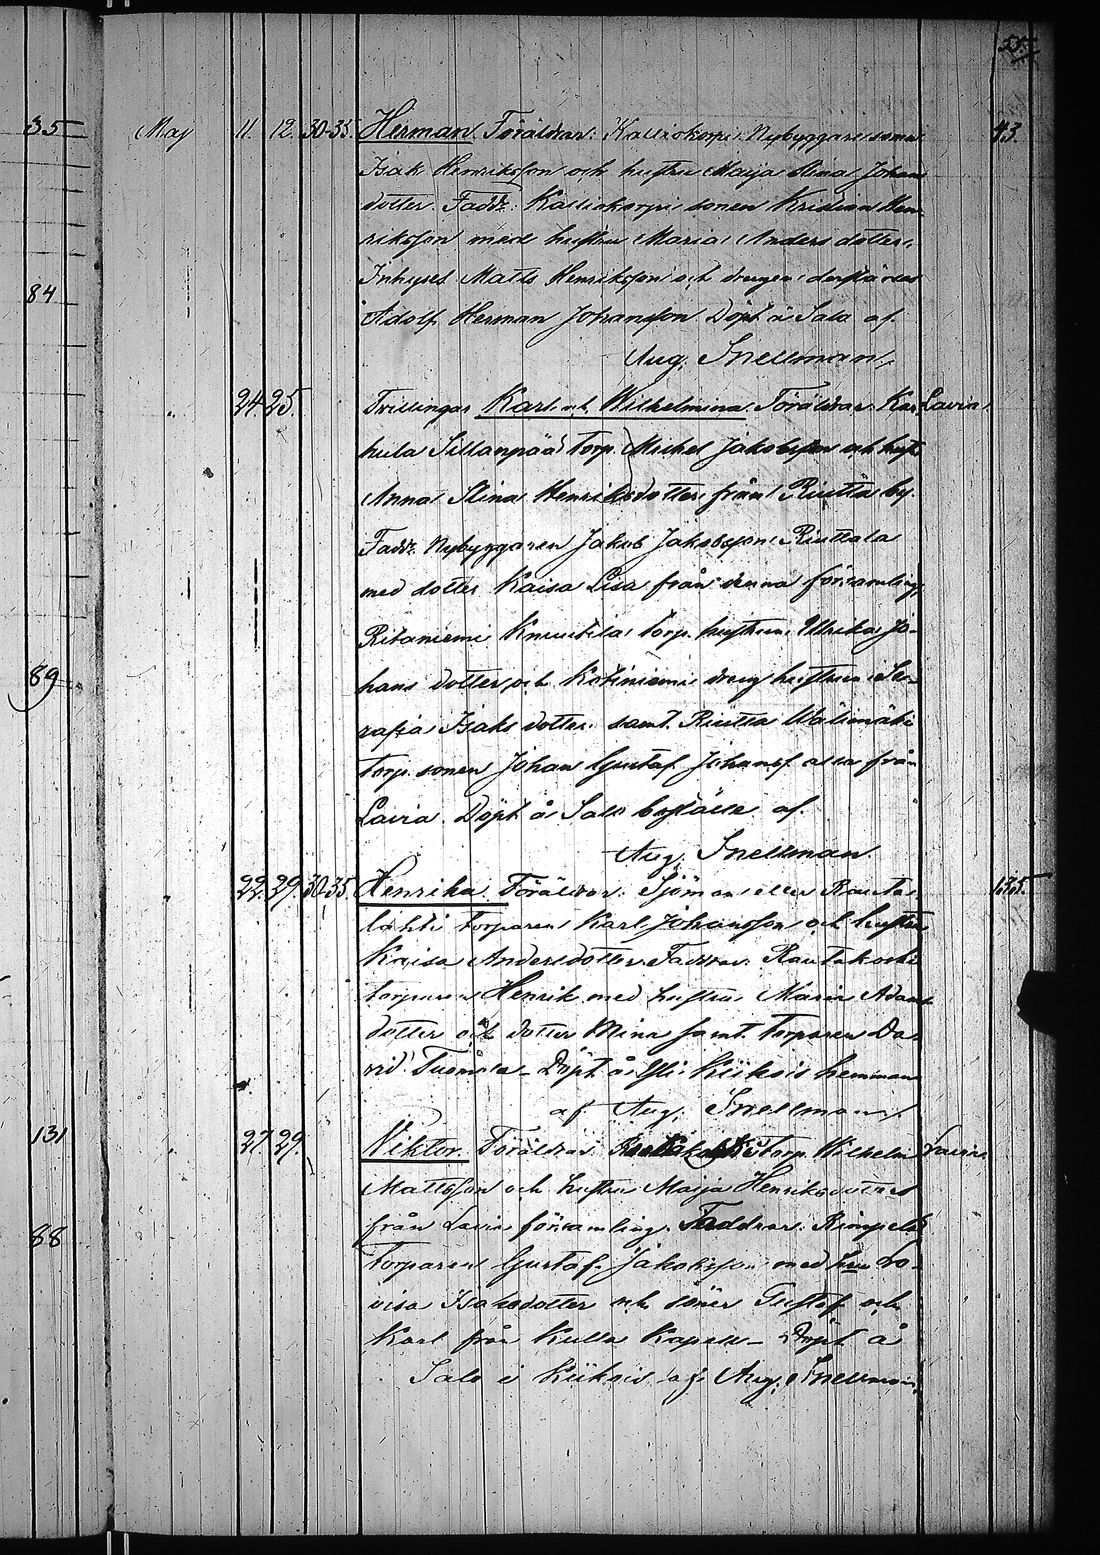 55.
35 May 11. 12. 30-35. Herman. Föräldrar: Kalliokorpi Nybyggare sonen 43.
Isak Henriksson och hustru Maija Stina Johans
dotter. Fadd: Kalliokorpi sonen Kristian Hen-
riksson med hustru Maria Anders dotter,
Inhyses Matts Henriksson och drengen derstädes
84
Adolf Herman Johansson Döpt å Sala af.
Aug. Snellman,
24 25. Trillingar Karl och Wilhelmina. Föräldrar Kar Lavia.
hula Sillanpää Torp. Michel Jakobsson och hust
Anna Stina Henriksdotter från Riutta by.
Fadd: Nybyggaren Jakob Jakobsson Riuttala
med dotter Kaisa Lisa från denna församling,
Ritaniemi Knuutila Torp. hustrun Ulrika Jo-
89
hans dotter och Kotiniemi dreng hustrun Se-
rafia Isaks dotter samt Riutta Wälimäki
Torp. sonen Johan Gustaf Johansf. alla från
Lavia. Döpt å Sala af.
Aug. Snellman.
22. 29. 30-35. Henrika. Föräldrar: Sjöman eller Rauta- 135.
lahti torparen Karl Johansson och hustru
Kaisa Andersdotter. Faddrar: Rautakoski
torparen Henrik med hustru Maria Adams
dotter och dotter Mina samt Torparen Da-
vid Tuomola - Döpt å Yli Kiikois hemman
af Aug. Snellman
131 27. 29. Viktor. Föräldrar Torp. Wilhelm Lavia.
Mattsson och hustru Maija Henriksdotter
från Lavia församling. Faddrar. Rimpelä
88
Torparen Gustaf Jakobsson med hun Lo-
visa Isaksdotter och söner Gustaf och
Karl från Kulla Kapell - Döpt å
Sala i Kiikois af Aug. Snellman.